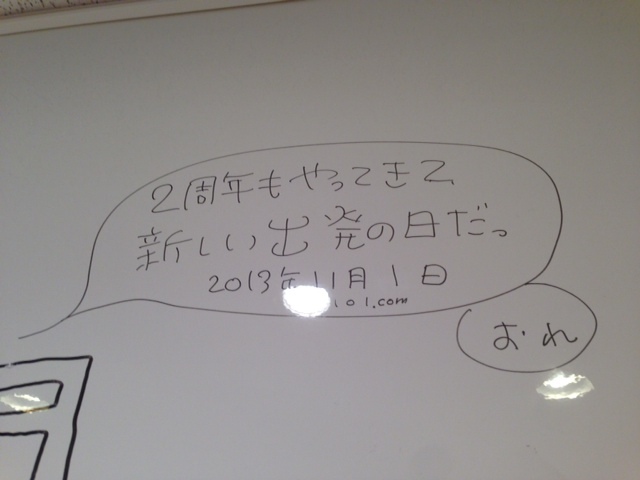 2周年もやってきて
新しい出発の日だっ
2013年11月1日
101.com
おれ